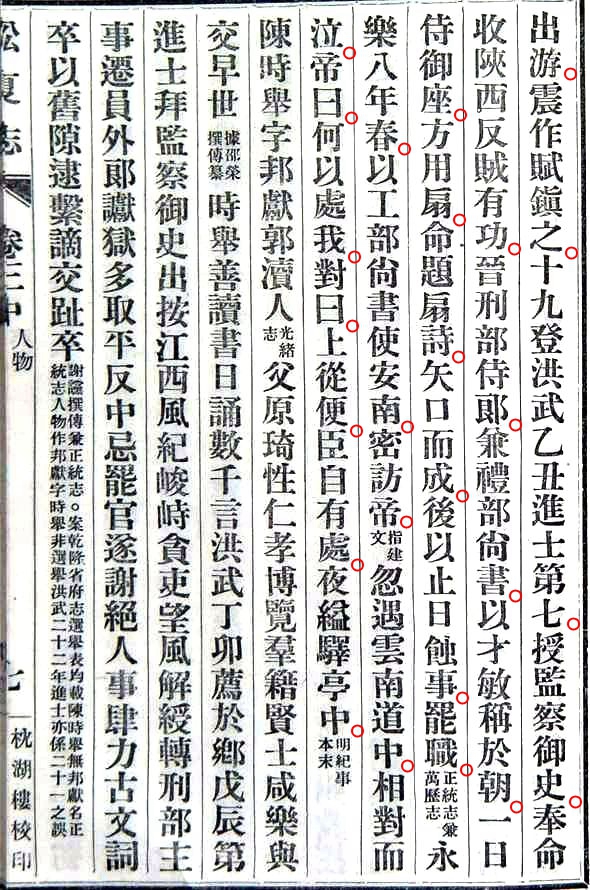 出游震作賦鎭之十九登洪武乙丑進士第七授監察御史奉命
收陝西反賊有功晉刑部侍郞兼禮部尙書以才敏稱於朝一日
侍御座方用扇命題扇詩矢口而成後以止日蝕事罷職正統志兼萬歷志永
樂八年春以工部尙書使安南密訪帝指建文忽遇雲南道中相對而
泣帝曰何以處我對曰上從便臣自有處夜縊驛亭中明紀事本末
陳時舉字邦獻郭瀆人光緒志父原琦性仁孝博覽羣籍賢士咸樂與
交早世據邵榮撰傳纂時舉善讀書日誦數千言洪武丁卯薦於鄕戊辰第
進士拜監察御史出按江西風紀峻峙貪吏望風解綬轉刑部主
事遷員外郞讞獄多取平反中忌罷官遂謝絕人事肆力古文詞
卒以舊隙逮繫謫交趾卒謝鐸撰傳兼正統志○案乾隆省府志選舉表均載陳時舉無邦獻名正統志人物作邦獻字時舉非選舉洪武二十二年進士亦係二十一之誤
志 卷三中 人物 七 枕湖樓校印